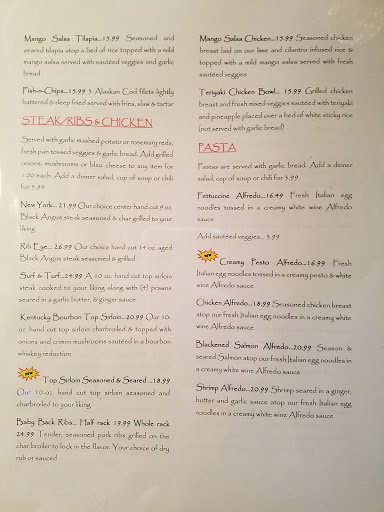 Mango Salsa Tilapia...15.99 Seasoned and
seared tilapia atop a bed of rice topped with a mild
mango salsa served with sautéed veggies and garlic
bread
Fish-n-Chips...15.99 3 Alaskan Cod filets lightly
battered & deep fried served with fries, slaw & tartar
STEAK/RIBS & CHICKEN
Served with garlic mashed potato or rosemary reds,
fresh pan tossed veggies & garlic bread. Add grilled
onions, mushrooms or bleu cheese to any item for
1.00 each. Add a dinner salad, cup of soup or chili
for 3.99
New York...21.99 Our choice center hand cut 9 oz.
Black Angus steak seasoned & char grilled to your
liking
Rib Eye... 26.99 Our choice hand cut 14 oz. aged
Black Angus steak seasoned & grilled
Surf & Turf...24.99 A 10 oz. hand cut top sirloin
steak cooked to your liking along with (4) prawns
seared in a garlic butter, & ginger sauce
Kentucky Bourbon Top Sirloin...20.99 Our 10-
oz. hand cut top sirloin charbroiled & topped with
onions and crimini mushrooms sautéed in a bourbon
whiskey reduction
NEW Top Sirloin Seasoned & Seared ...18.99
Our 10-oz. hand cut top sirloin seasoned and
charbroiled to your liking
Baby Back Ribs... Half rack 19.99 Whole rack
24.99 Tender, seasoned pork ribs grilled on the
char broiler to lock in the flavor. Your choice of dry
rub or sauced
Mango Salsa Chicken...15.99 Seasoned chicken
breast laid on our lime and cilantro infused rice &
topped with a mild mango salsa served with fresh
sautéed veggies
Teriyaki Chicken Bowl... 15.99 Grilled chicken
breast and fresh mixed veggies sautéed with teriyaki
and pineapple placed over a bed of white sticky rice
(not served with garlic bread)
PASTA
Pastas are served with garlic bread. Add a dinner
salad, cup of soup or chili for 3.99
Fettuccine Alfredo...16.49 Fresh Italian egg
noodles tossed in a creamy white wine Alfredo
sauce
Add sautéed veggies... 3.99
NEW Creamy Pesto Alfredo...16.99 Fresh
Italian egg noodles tossed in a creamy pesto & white
wine Alfredo sauce
Chicken Alfredo...18.99 Seasoned chicken breast
atop our fresh Italian egg noodles in a creamy white
wine Alfredo sauce
Blackened Salmon Alfredo...20.99 Season &
seared Salmon atop our fresh Italian egg noodles in
a creamy white wine Alfredo sauce
Shrimp Alfredo...20.99 Shrimp seared in a ginger,
butter and garlic sauce atop our fresh Italian egg
noodles in a creamy white wine Alfredo sauce